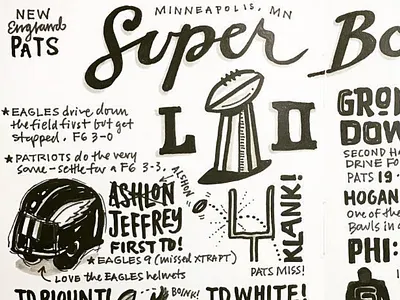 NEW
England
PATS
MINNEAPOLIS, MN
Super Bo
L II
★EAGLES drive down
the field first but get
stopped. FG 3-0
★PATRIOTS do the very
same - settle for a FG 3-3.
ALSHON
ASHLON
JEFFREY
FIRST TD!
★EAGLES 9 (missed XTRAPT)
LOVE the EAGLES helmets
KLANK!
PATS MISS!
TD BLOUNT!
BOINK!
TD WHITE!
GRON
DOW
SECOND HA
DRIVE FO
PATS 19 -
HOGAN
One of the
Bowls in
PHI: